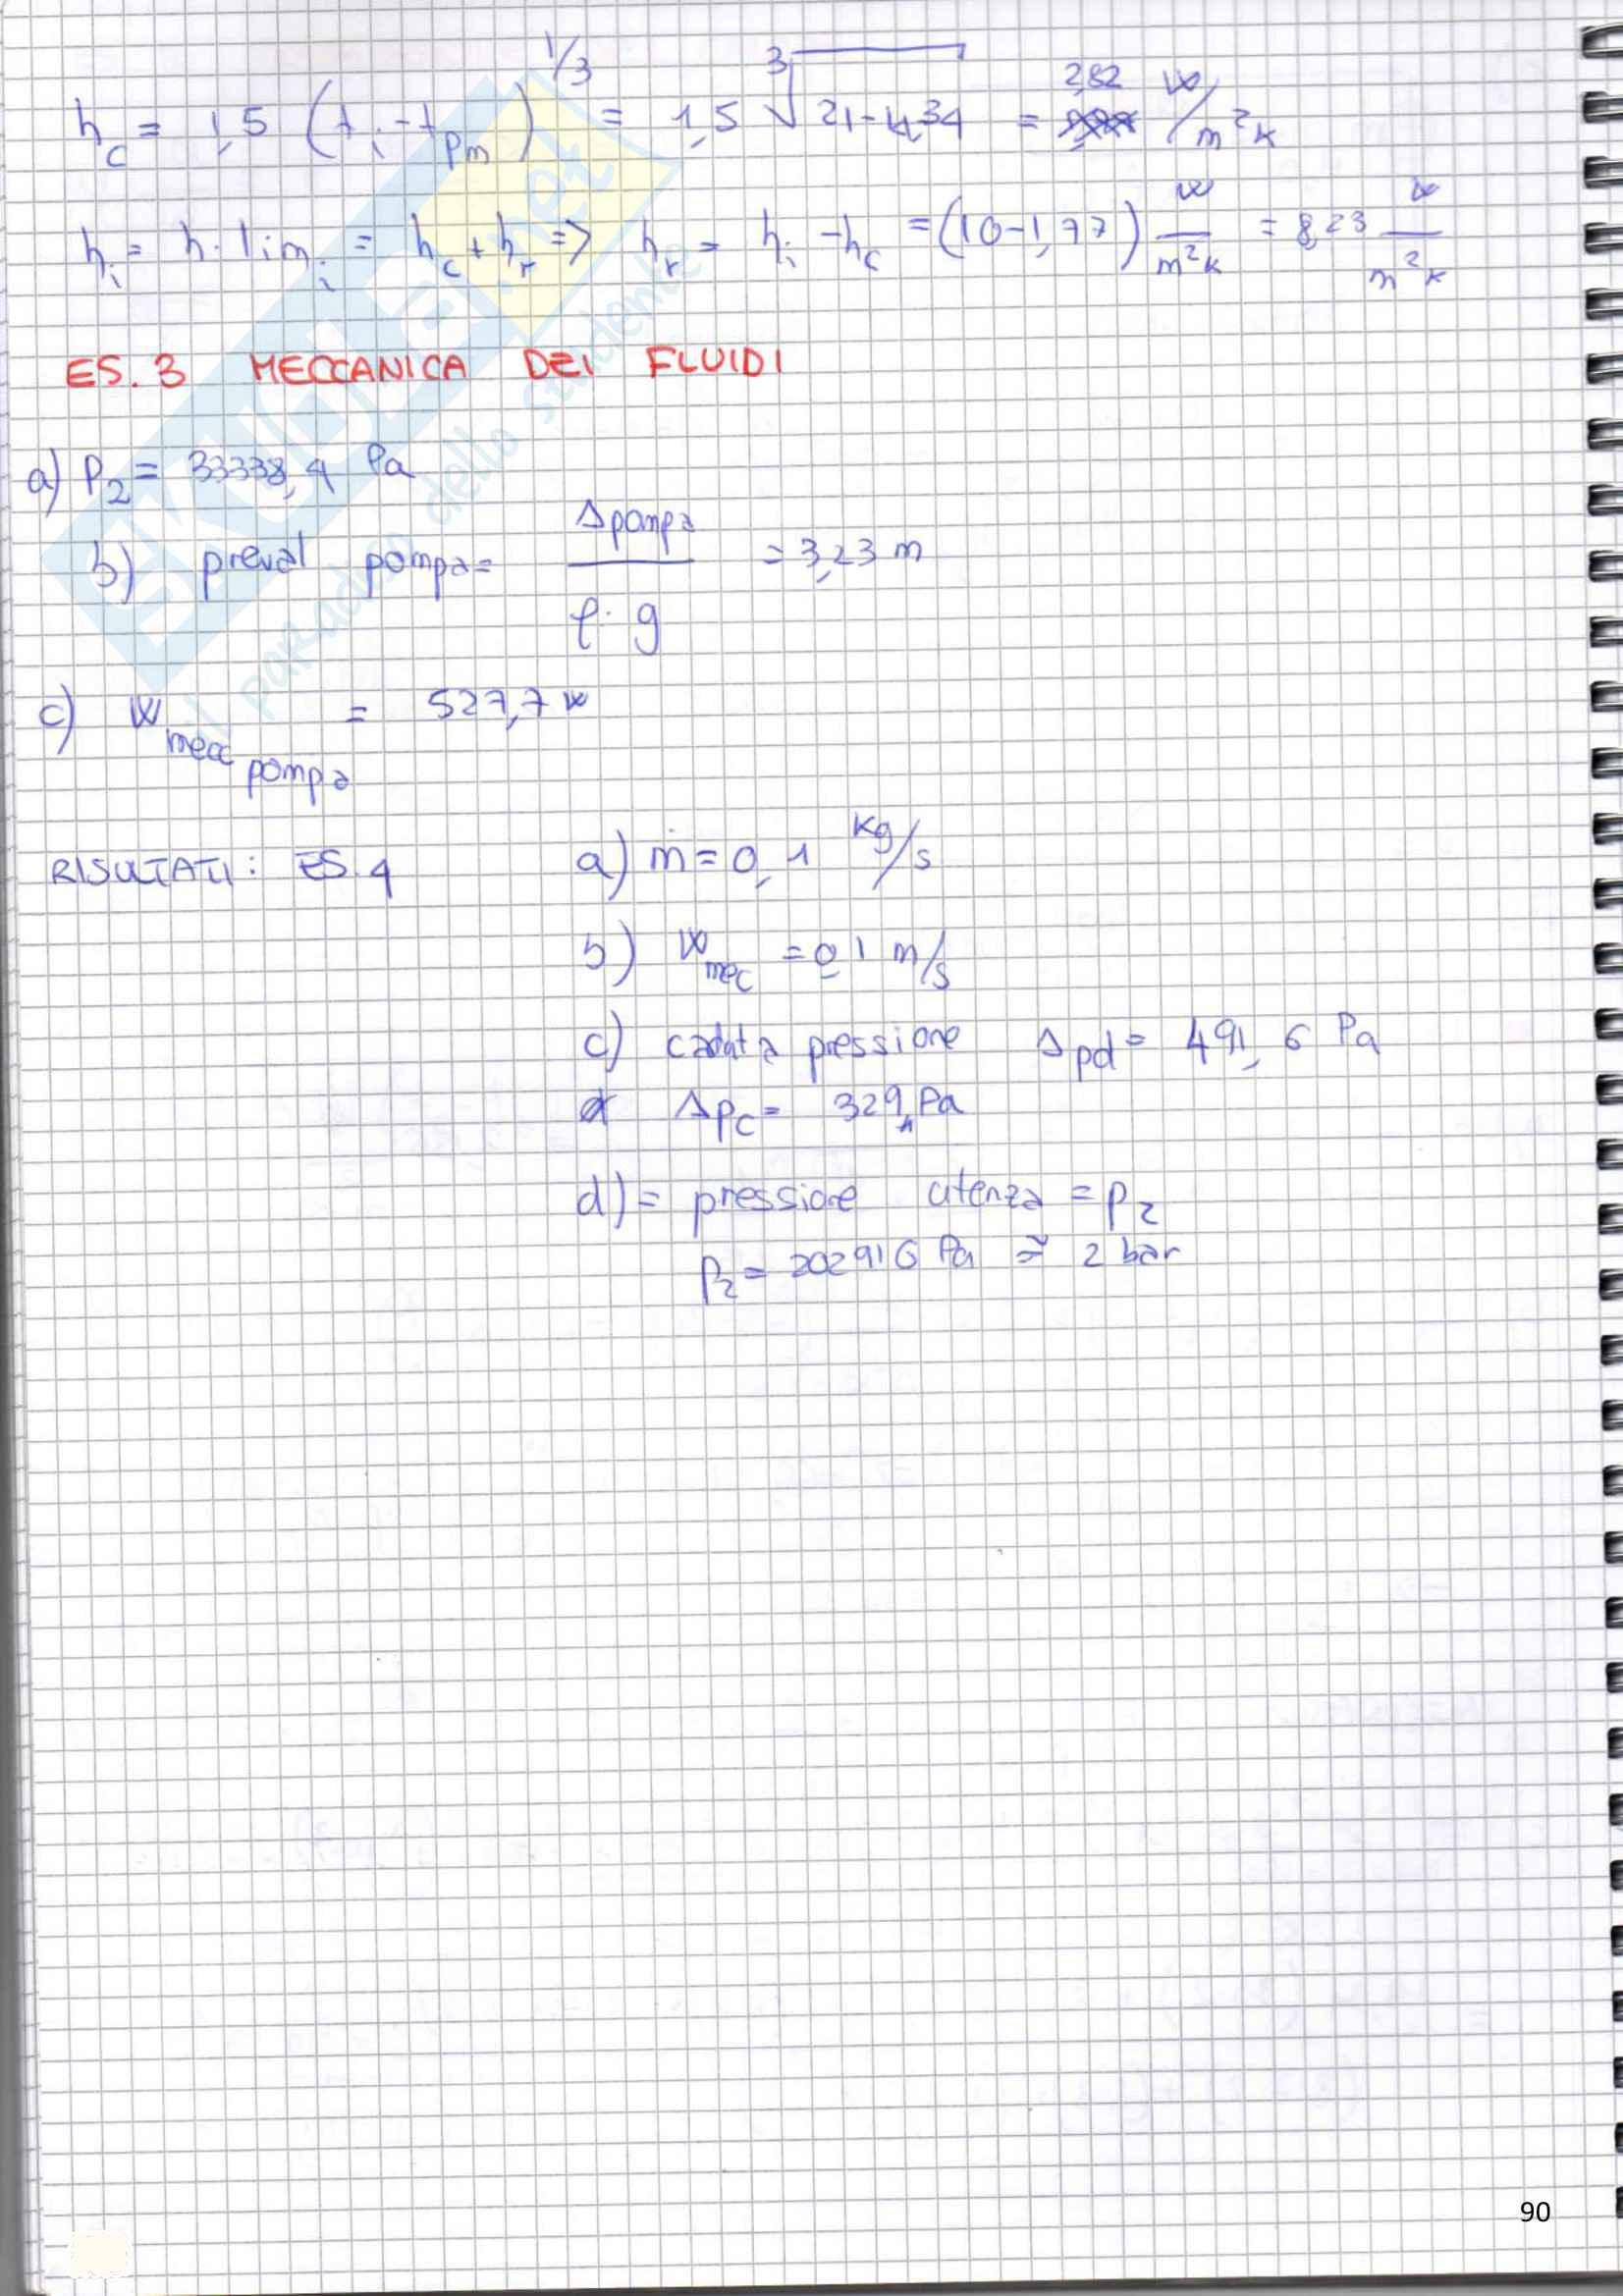 h_c = 1,5 (t_i - t_pm)^1/3 = 1,5 ∛21-14,34 = 2,82 W/m²K
h_i = h lim_i = h_c + h_r => h_r = h_i - h_c = (10-1,77) W/m²K = 8,23 W/m²K
ES. 3 MECCANICA DEI FLUIDI
a) P_2 = 33338,4 Pa
b) preval pompa = Δpompa / ρ·g = 3,23 m
c) W_mecc pompa = 527,7 W
RISULTATI: ES. 4 a) ṁ = 0,1 kg/s
b) W_mec = 0,1 m/s
c) caduta pressione Δpd = 491,6 Pa
Δp_c = 329,1 Pa
d) = pressione utenza = P_2
P_2 = 202916 Pa ≅ 2 bar
SKUOLA.net
il paradiso dello studente
90